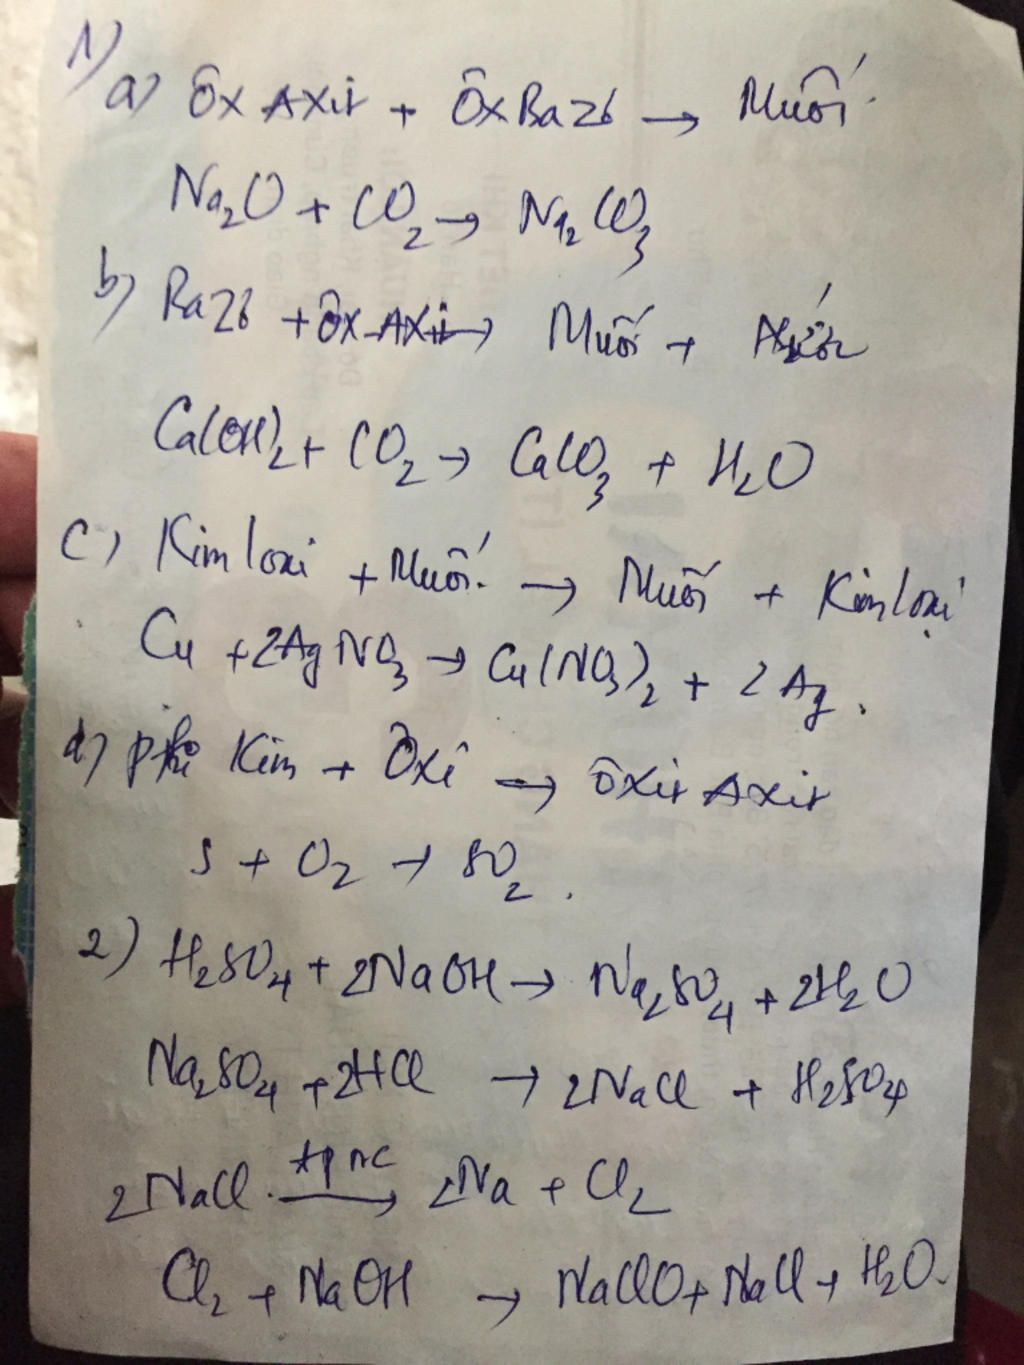 1)
a) Ôx Axit + Ôx Bazơ → Muối.
Na₂O + CO₂ → Na₂CO₃
b) Bazơ + Ôx Axit → Muối + Nước
Ca(OH)₂ + CO₂ → CaCO₃ + H₂O
c) Kim loại + Muối. → Muối + Kim loại
Cu + 2AgNO₃ → Cu(NO₃)₂ + 2Ag.
d) phi Kim + Ôxi → ôxit Axit
S + O₂ → SO₂.
2) H₂SO₄ + 2NaOH → Na₂SO₄ + 2H₂O
Na₂SO₄ + 2HCl → 2NaCl + H₂SO₄
2NaCl. đpnc → 2Na + Cl₂
Cl₂ + NaOH → NaClO + NaCl + H₂O.